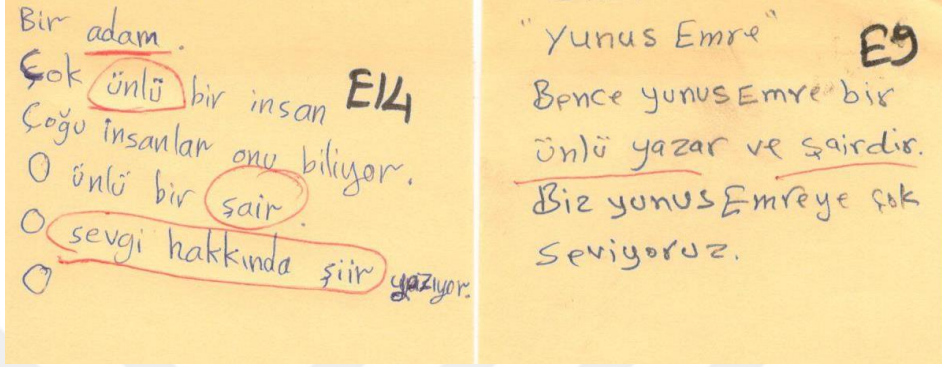 Bir adam.
Çok ünlü bir insan
E14
Çoğu insanlar onu biliyor.
O ünlü bir şair.
O sevgi hakkında şiir yazıyor.
O
"Yunus Emre"
E9
Bence yunus Emre bir
ünlü yazar ve şairdir.
Biz yunus Emreye çok
seviyoruz.